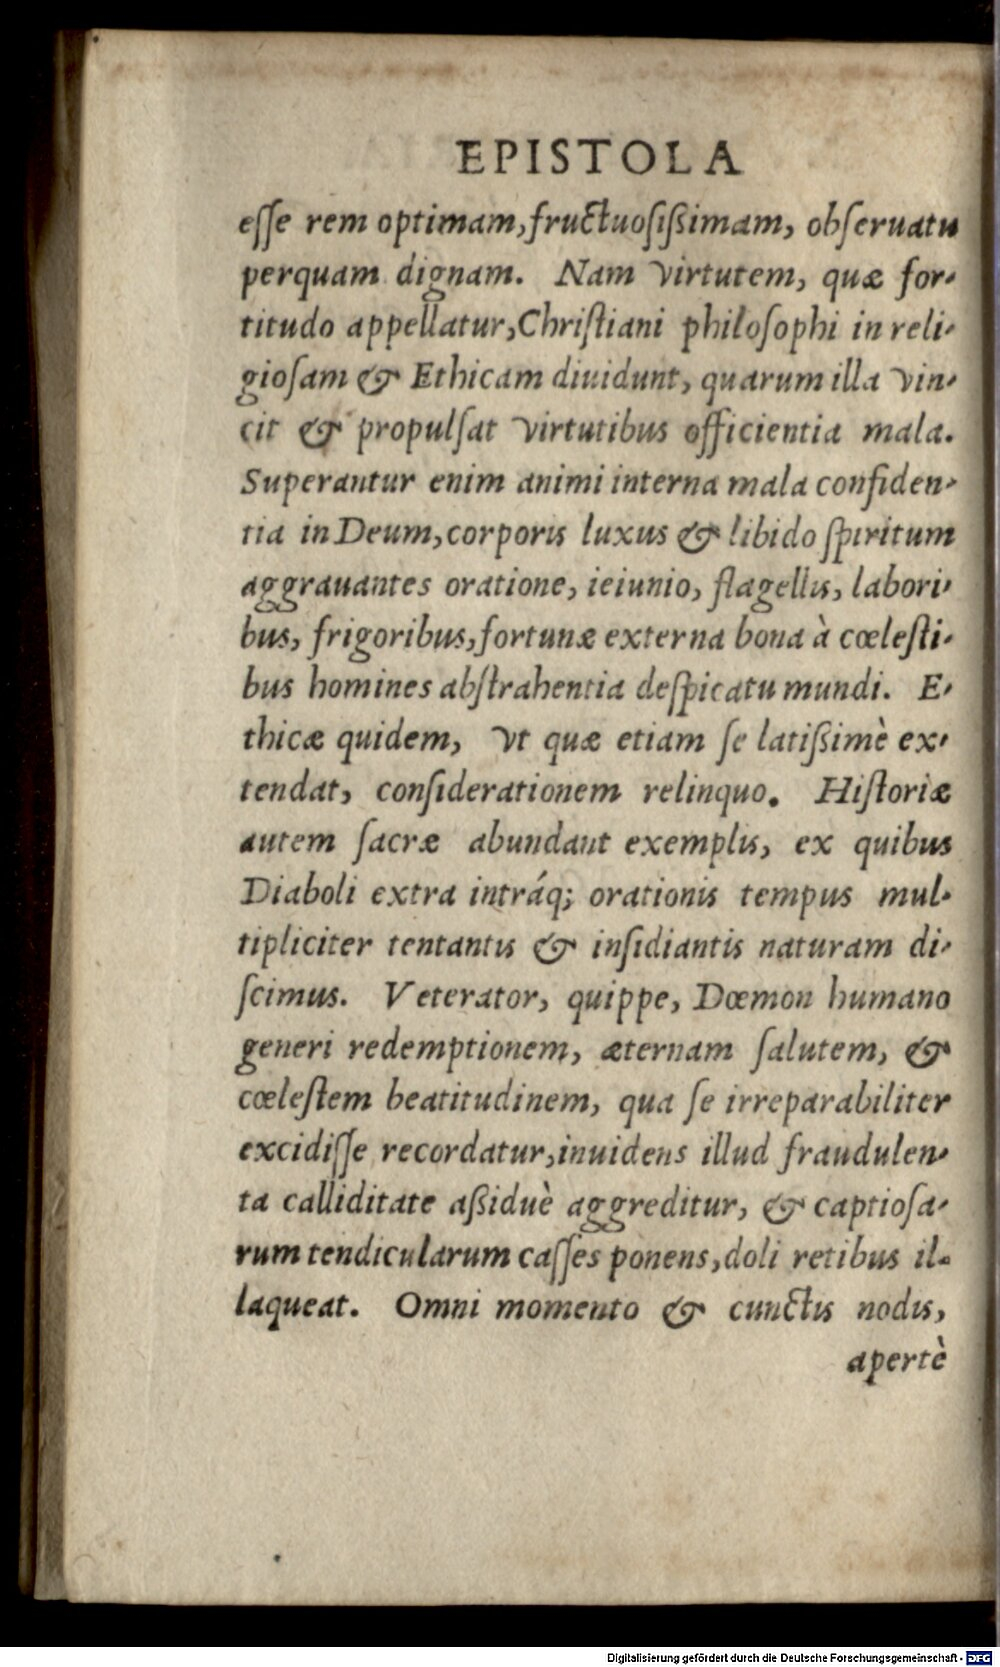 EPISTOLA
esse rem optimam, fructuosißimam, obseruatu
perquam dignam. Nam virtutem, quæ for-
titudo appellatur, Christiani philosophi in reli-
giosam & Ethicam diuidunt, quarum illa vin-
cit & propulsat virtutibus officientia mala.
Superantur enim animi interna mala confiden-
tia in Deum, corporis luxus & libido spiritum
aggrauantes oratione, ieiunio, flagellis, labori-
bus, frigoribus, fortunæ externa bona à cœlesti-
bus homines abstrahentia despicatu mundi. E-
thicæ quidem, vt quæ etiam se latißimè ex-
tendat, considerationem relinquo. Historiæ
autem sacræ abundant exemplis, ex quibus
Diaboli extra intráq; orationis tempus mul-
tipliciter tentantis & insidiantis naturam di-
scimus. Veterator, quippe, Dœmon humano
generi redemptionem, æternam salutem, &
cœlestem beatitudinem, qua se irreparabiliter
excidisse recordatur, inuidens illud fraudulen-
ta calliditate aßiduè aggreditur, & captiosa-
rum tendicularum casses ponens, doli retibus il-
laqueat. Omni momento & cunctis nodis,
apertè
Digitalisierung gefördert durch die Deutsche Forschungsgemeinschaft - DFG